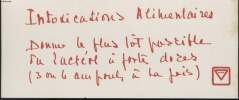 Intoxications Alimentaires
Donner le plus tôt possible
du Lactéol à fortes doses
(3 ou 4 ampoules à la fois)